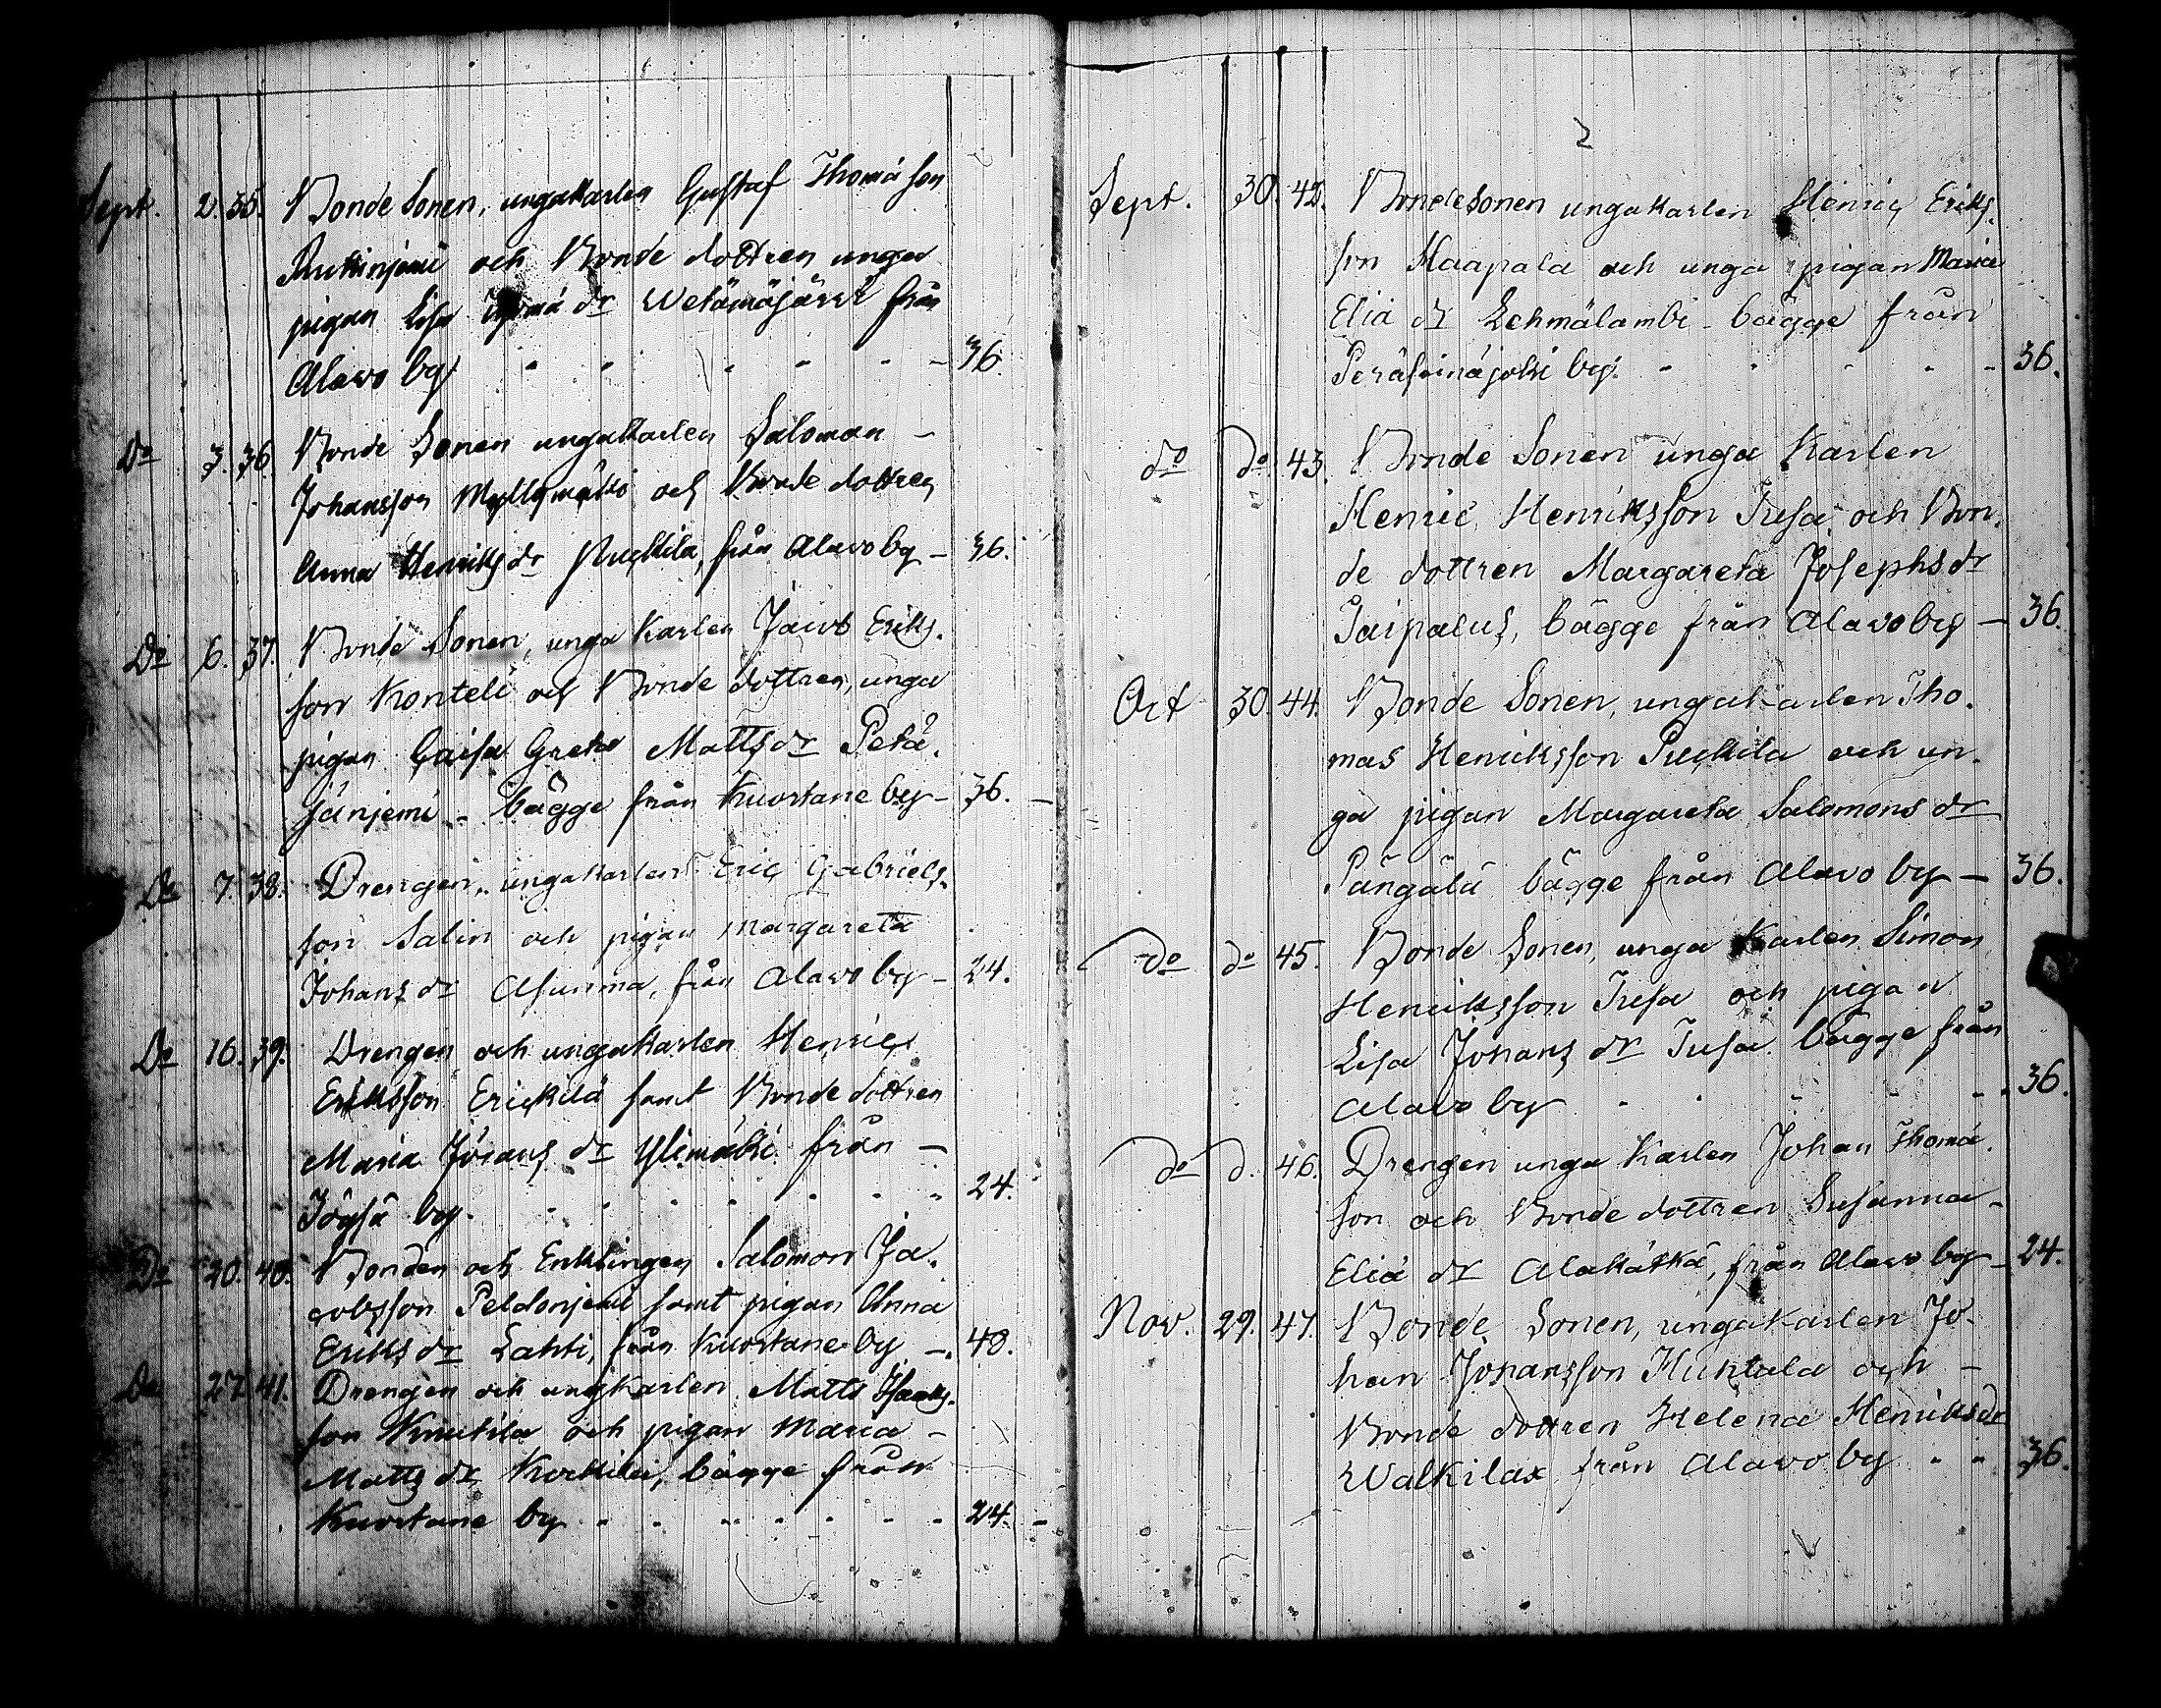 Sept. 2. 35. Bonde Sonen, ungakarlen Gustaf Thomá son
och Bonde dottren unga
pigan Lisa Thomá dr Wetämäjärvi från
Alavo by - - - - - - 36.
Do 3. 36. Bonde Sonen ungakarlen Salomon -
Johansson Myllymäki och Bonde dottren
Anna Henriksdr Puckila, från Alavo by - 36.
Do 6. 37. Bonde Sonen, unga Karlen Jacob Eriks.
son Konteli och Bonde dottren, unga
pigan Caisa Greta Matts dr Petä.
jänjemi - bägge från Kuortane by - 36. -
Do 7. 38. Drengen, ungakarlen Eric Gabriels.
son Salin och pigan Margareta
Johans dr Asunma, från Alavo by - 24.
Do 16. 39. Drengen och ungakarlen Henric
Eriksson Erickilä samt Bonde dottren
Maria Johans dr Ylimäki från -
by. - - - - - - - 24.
Do 20. 40. Bonden och Enklingen Salomon Ja.
cobsson Peldonjemi samt pigan Anna
Eriks dr Lahti, från Kuortane by -. 48.
Do 27. 41. Drengen och ungkarlen Matts Isaaks.
son Knuutila och pigan Maria -
Matts dr Kuckila, bägge från
Kuortane by - - - - - - - 24. -
2
Sept. 30. 42. Bonde sonen ungakarlen Henric Eriks.
son Haapala och unga pigan Maria
Eliá dr Lehmälambi - bägge från
Peräseinäjoki by. - - - - - 36.
do do. 43. Bonde Sonen unga Karlen
Henric Henriksson Tusa och Bon.
de dottren Margareta Josephs dr
Saipalus, bägge från Alavo by - 36.
Oct 30. 44. Bonde Sonen, ungakarlen Tho.
mas Henriksson Puckila och un.
ga pigan Margareta Salomons dr
Pångälä bägge från Alavo by - 36.
do do 45. Bonde Sonen, unga Karlen Simon
Henriksson Tusa och pigan
Lisa Johans dr Tusa. bägge från
Alavo by - - - - - 36.
do d. 46. Drengen unga Karlen Johan Thomá.
son och Bonde dottren Susanna -
Eliá dr Alakätkä, från Alavo by - 24.
Nov. 29. 47. Bonde Sonen, ungakarlen Jo.
han Johansson Huhtala och -
Bonde dottren Helena Henriksdr
Walkilax från Alavo by - - 36.